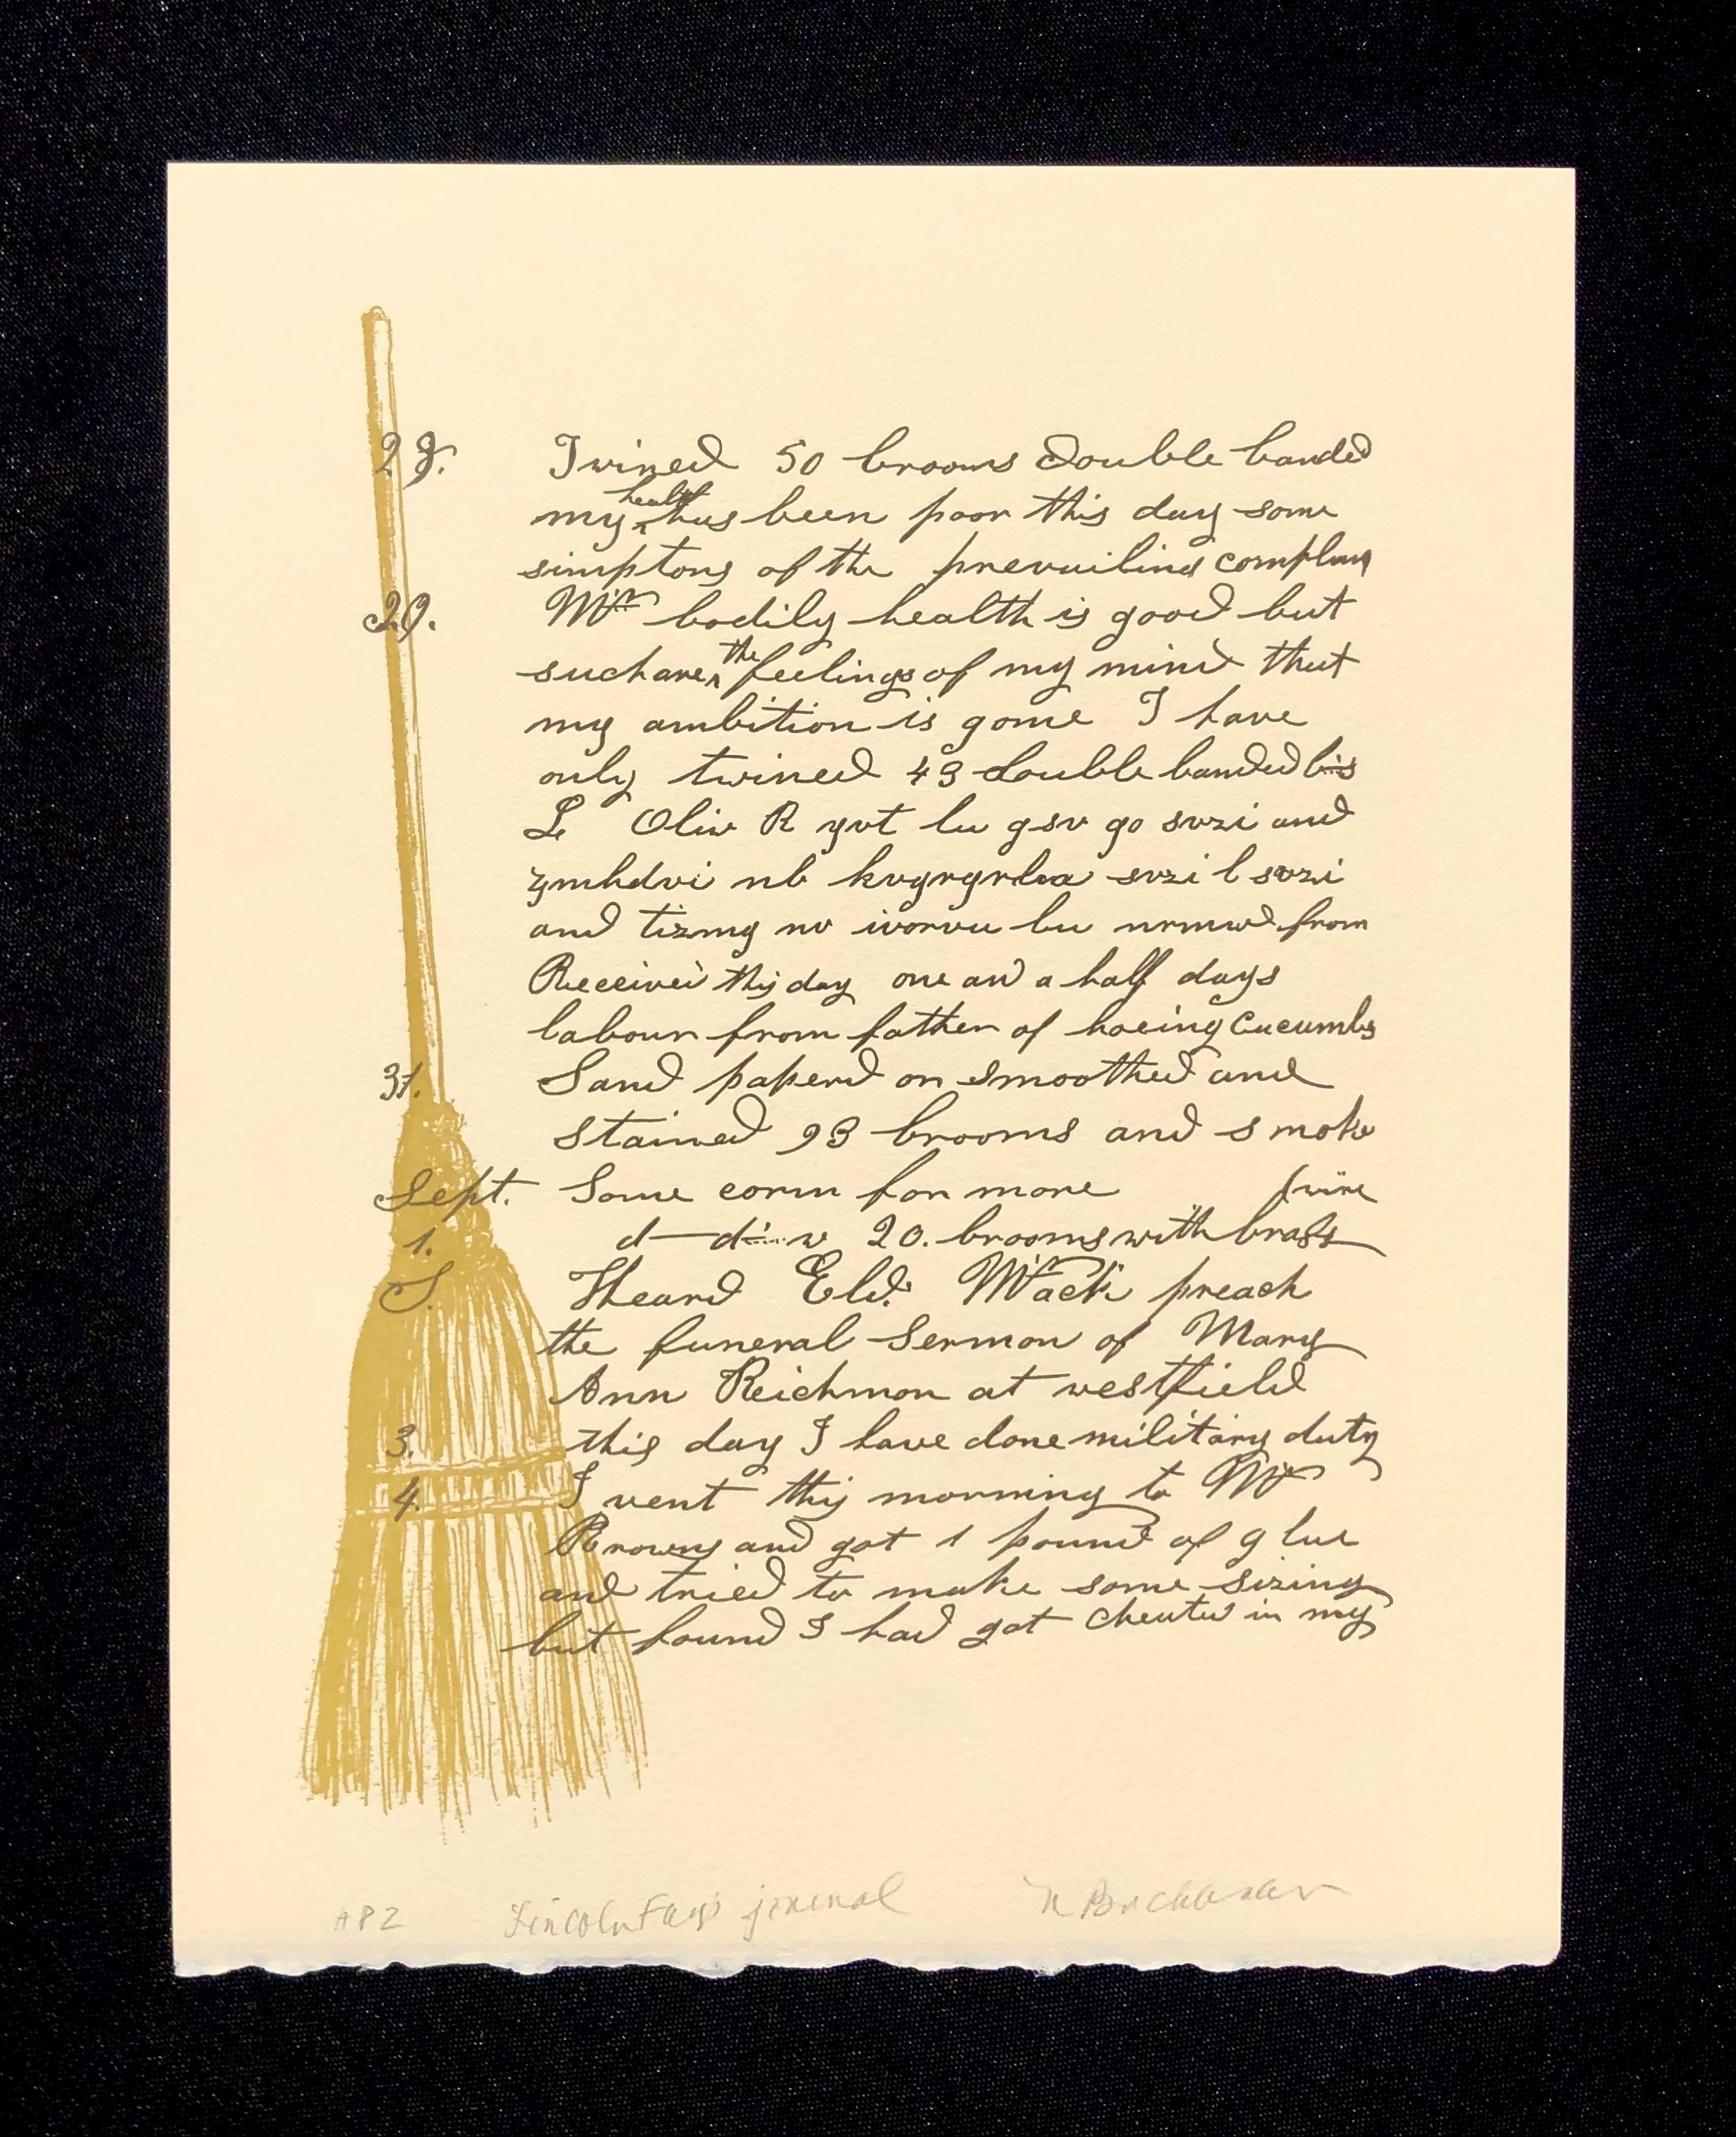 28. Twined 50 brooms double banded
health
my ^ has been poor this day some
simptons of the prevailing complan
29. My bodily health is good but
the
such are ^ feelings of my mind that
my ambition is gone I have
only twined 43 double banded
L Oliv R gvt lu gsv go svzi and
zmhdvi nb kvgrgrlm svzi l svzi
and tizmg nv ivorvu lu nrmw from
Received this day one and a half days
labour from father of hoeing Cucumbs
31. Sand paperd on smoothed and
stained 93 brooms and smoke
Sept. Some corn for more wire
1. 20. brooms with brass
S. Heard Eld. Mack preach
the funeral Sermon of Mary
Ann Reichmon at westfield
3. this day I have done military duty
4. I went this morning to Mr
Browns and got 1 pound of glue
and tried to make some sizing
but found I had got cheated in my
AP2 Lincoln Fay's journal